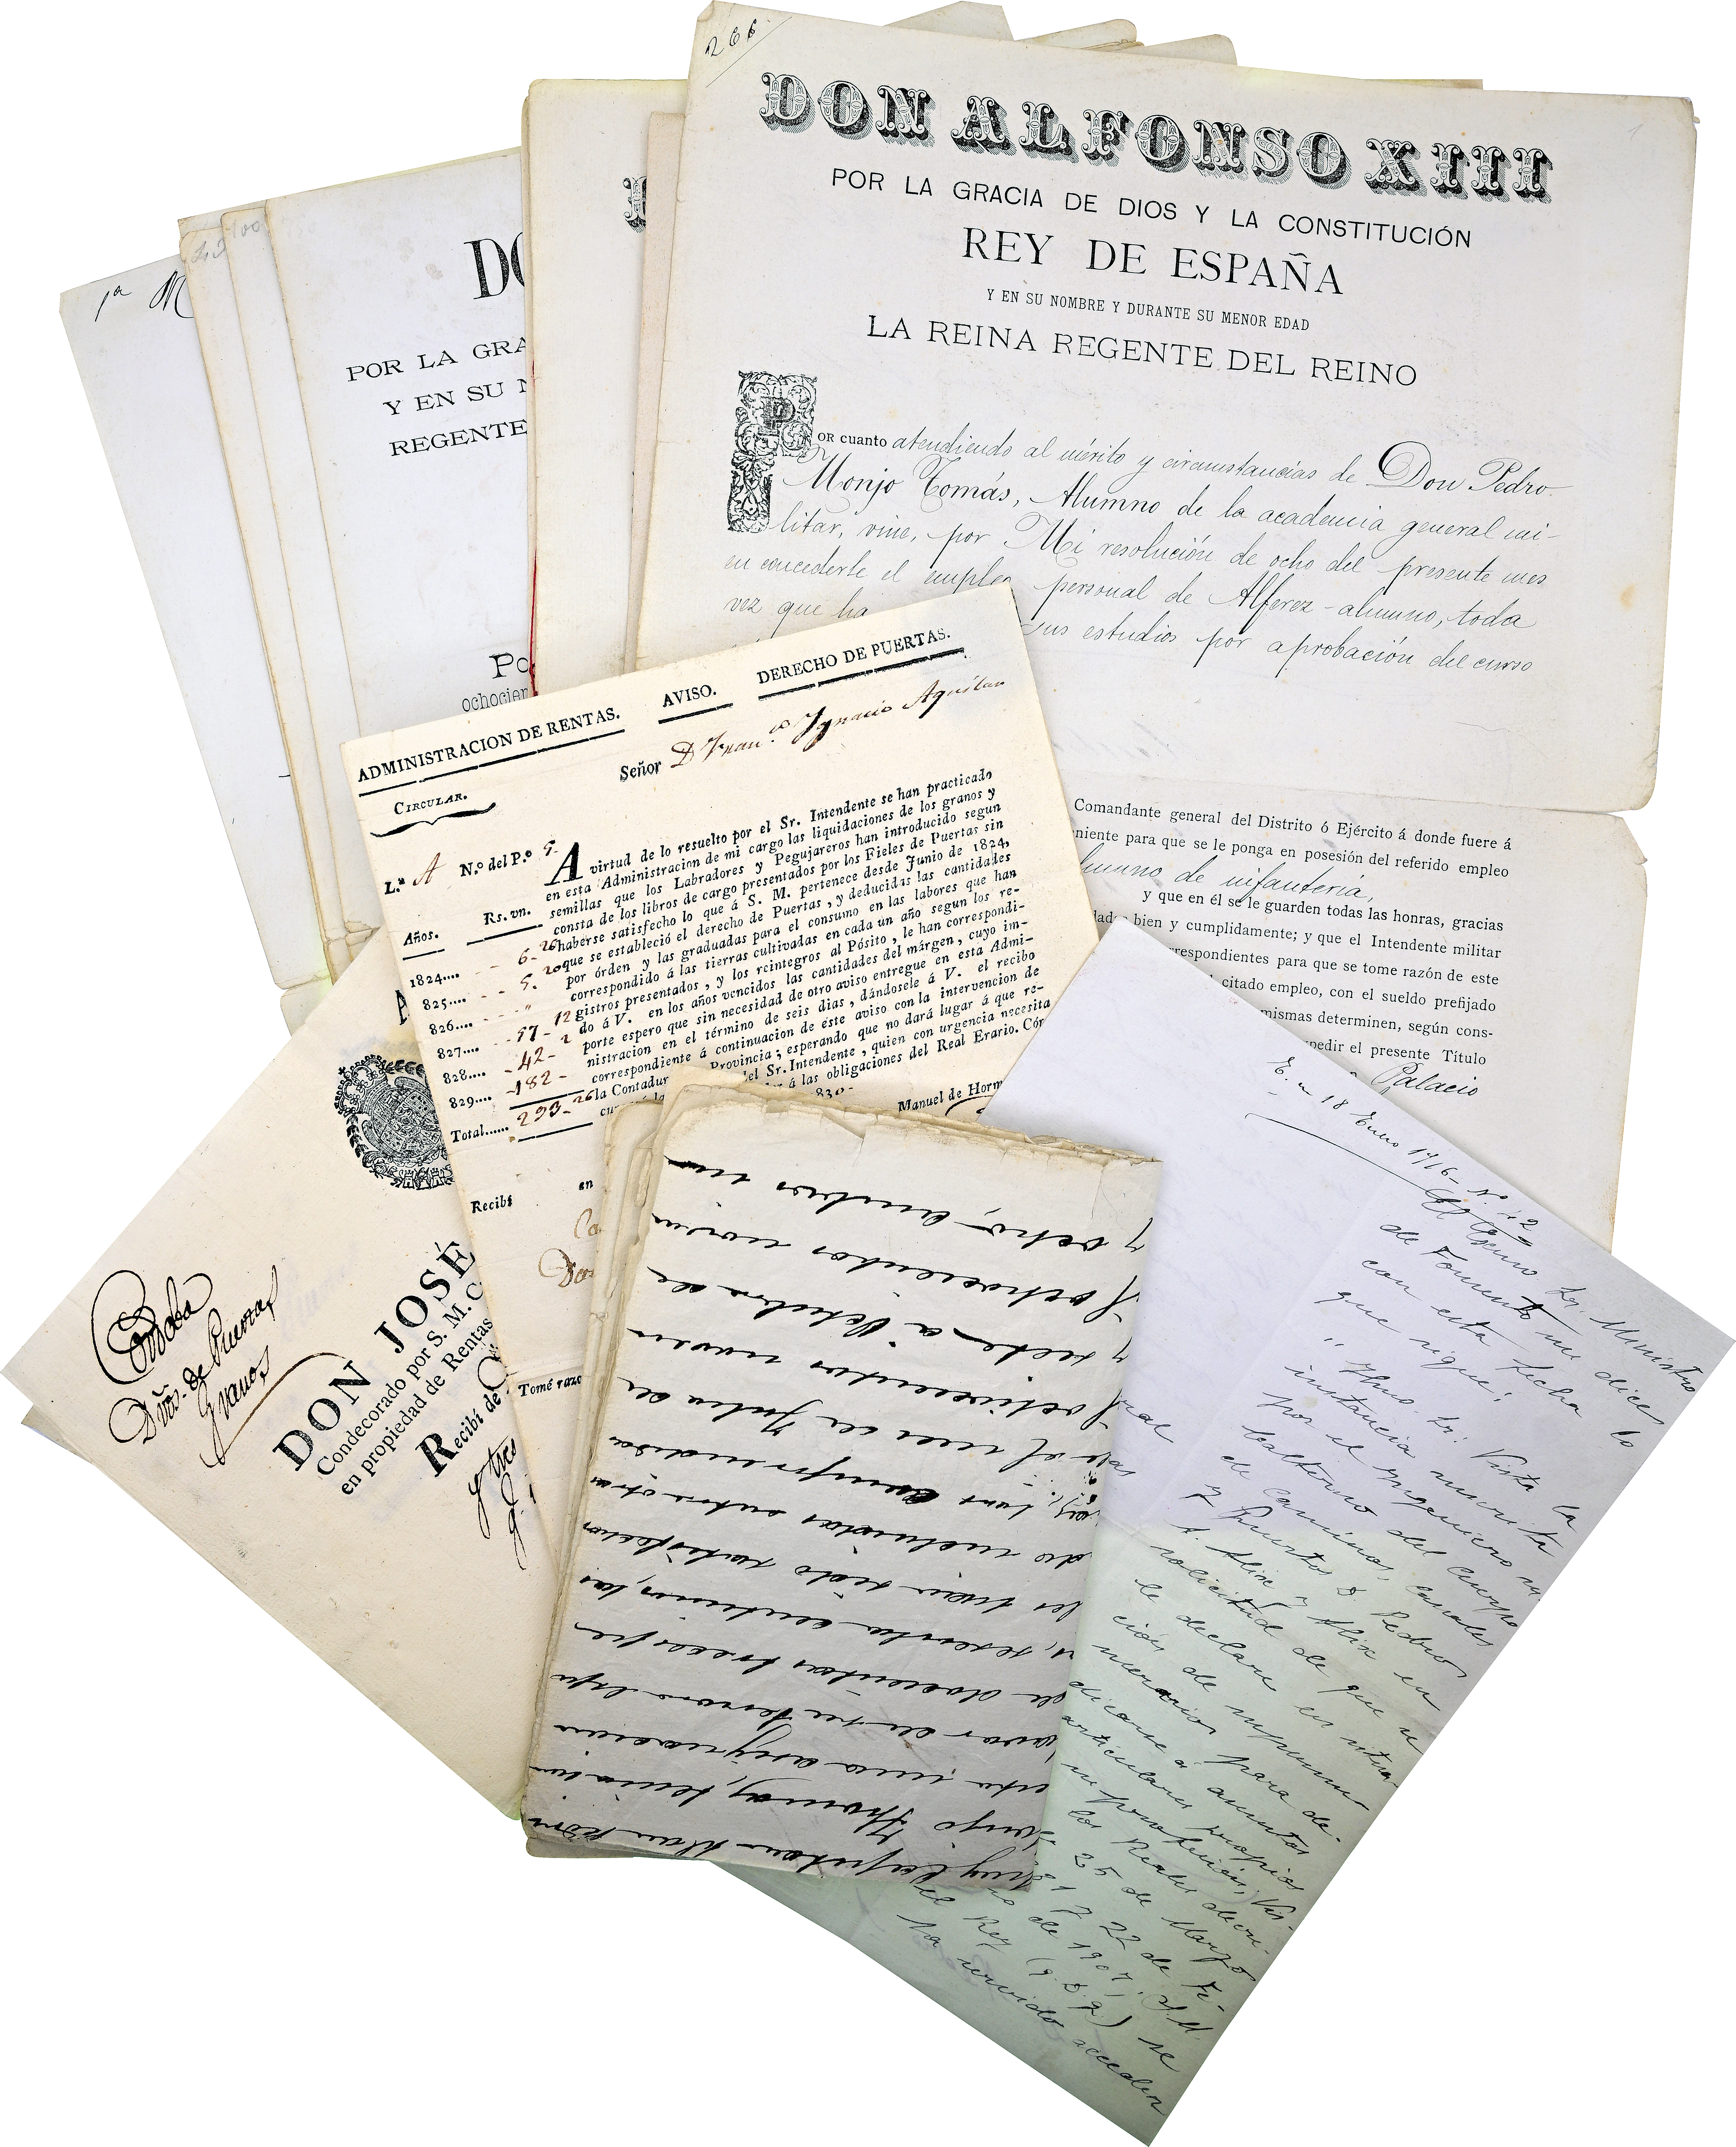 266
DON ALFONSO XIII
POR LA GRACIA DE DIOS Y LA CONSTITUCIÓN
REY DE ESPAÑA
Y EN SU NOMBRE Y DURANTE SU MENOR EDAD
LA REINA REGENTE DEL REINO
Por cuanto atendiendo al mérito y circunstancias de Don Pedro
Monjo Tomás, Alumno de la academia general mi-
litar, vine, por Mi resolución de ocho del presente mes
en concederle el empleo personal de Alferez-alumno, toda
vez que ha sus estudios por aprobación del curso
Comandante general del Distrito ó Ejército á donde fuere á
niente para que se le ponga en posesión del referido empleo
lumno de infantería,
y que en él se le guarden todas las honras, gracias
bien y cumplidamente; y que el Intendente militar
rrespondientes para que se tome razón de este
citado empleo, con el sueldo prefijado
mismas determinen, según cons-
pedir el presente Título
Palacio
1ª M
DO
POR LA GRA
Y EN SU N
REGENTE
Po
ochocien
ADMINISTRACION DE RENTAS. AVISO. DERECHO DE PUERTAS.
CIRCULAR.
Señor D. Fran.co Ygnacio Aguilar
L.ª A N.º del P.º 9.
Años. Rs. vn.
1824.... 6-26
825.... 5. 20
826.... "
827.... 57-12
828.... 42-2
829.... 182-
Total...... 293-26
A virtud de lo resuelto por el Sr. Intendente se han practicado
en esta Administracion de mi cargo las liquidaciones de los granos y
semillas que los Labradores y Pegujareros han introducido segun
consta de los libros de cargo presentados por los Fieles de Puertas sin
haberse satisfecho lo que á S. M. pertenece desde Junio de 1824,
que se estableció el derecho de Puertas, y deducidas las cantidades
por órden y las graduadas para el consumo en las labores que han
correspondido á las tierras cultivadas en cada un año segun los re-
gistros presentados, y los reintegros al Pósito, le han correspondi-
do á V. en los años vencidos las cantidades del márgen, cuyo im-
porte espero que sin necesidad de otro aviso entregue en esta Admi-
nistracion en el término de seis dias, dándosele á V. el recibo
correspondiente á continuacion de este aviso con la intervencion de
la Contadur Provincia; esperando que no dará lugar á que re-
del Sr. Intendente, quien con urgencia necesita
á las obligaciones del Real Erario. Cór
830-
Manuel de Horm
Recibí en
Tomé razo
Cordoba
Dros. de Puertas
Granos
DON JOSÉ
Condecorado por S. M. C
en propiedad de Rentas
Recibí de
y tres
E. n 18 Enero 1916- N.º 42
El Excmo Sr. Ministro
de Fomento me dice
con esta fecha lo
que sigue:
"Ilmo. Sr: Vista la
instancia suscrita
por el Ingeniero su
balterno del Cuerpo
de Caminos, Canales
y Puertos D Pedro
A. Alix y Alix en
solicitud de que se
le declare en situa-
ción de supernu
merario para de-
dicarse á asuntos
articulares propios
su profesión; Vis-
los Reales decre-
25 de Marzo
81 y 22 de Fe-
ro de 1907, S.M.
el Rey (q. D. g.) se
ha servido acceder
y ocho, ambos in
y ochocientos noven
y siete, a Octubre de
de el mes de Julio de
los comprendida
do incluidas entre otra
les hayan sido satisfechas
s, sesenta centimos, las
de doscientas trece pe
favor de su
una asignacion
onjo Thomas,
muy Capitan Don